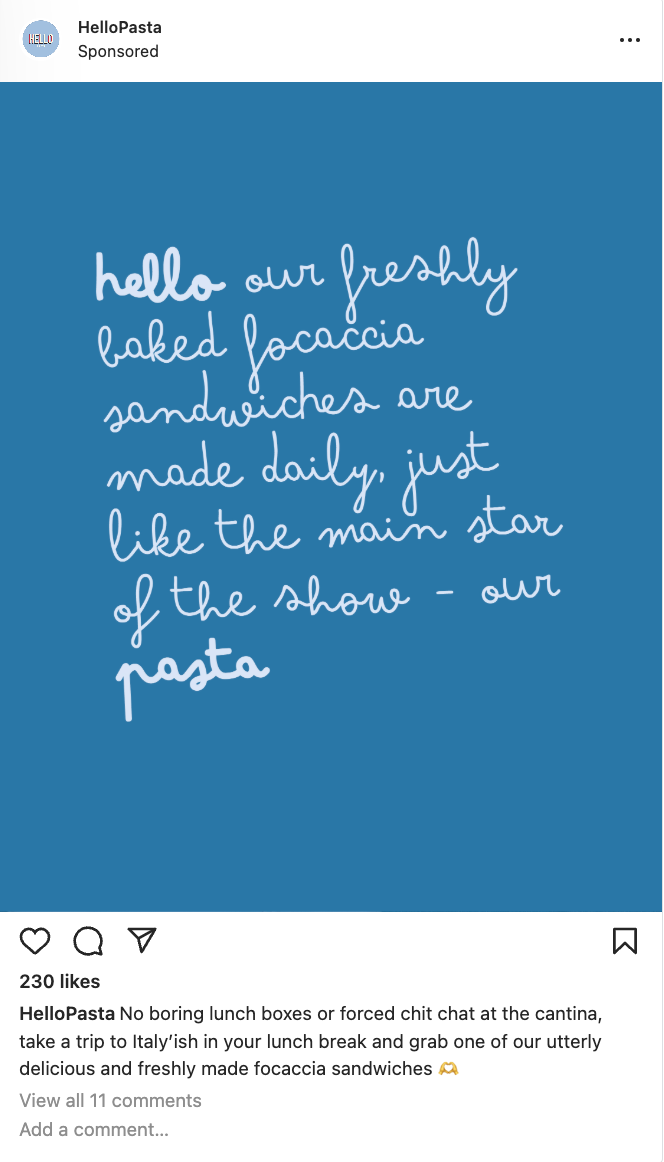 HELLO
HelloPasta
Sponsored
hello our freshly
baked focaccia
sandwiches are
made daily, just
like the main star
of the show - our
pasta
230 likes
HelloPasta No boring lunch boxes or forced chit chat at the cantina,
take a trip to Italy’ish in your lunch break and grab one of our utterly
delicious and freshly made focaccia sandwiches 🫶
View all 11 comments
Add a comment...